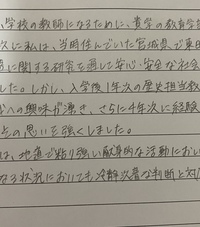 学校の教師になるために、貴学の教育学
次に私は、当時住んでいた宮城県で東日
に関する研究を通して安心・安全な社会
した。しかし、入学後1年次の歴史担当教
への興味が湧き、さらに4年次に経験
その思いを強くしました。
は、地道で粘り強い献身的な活動におい
なる状況においても冷静沈着な判断と対応